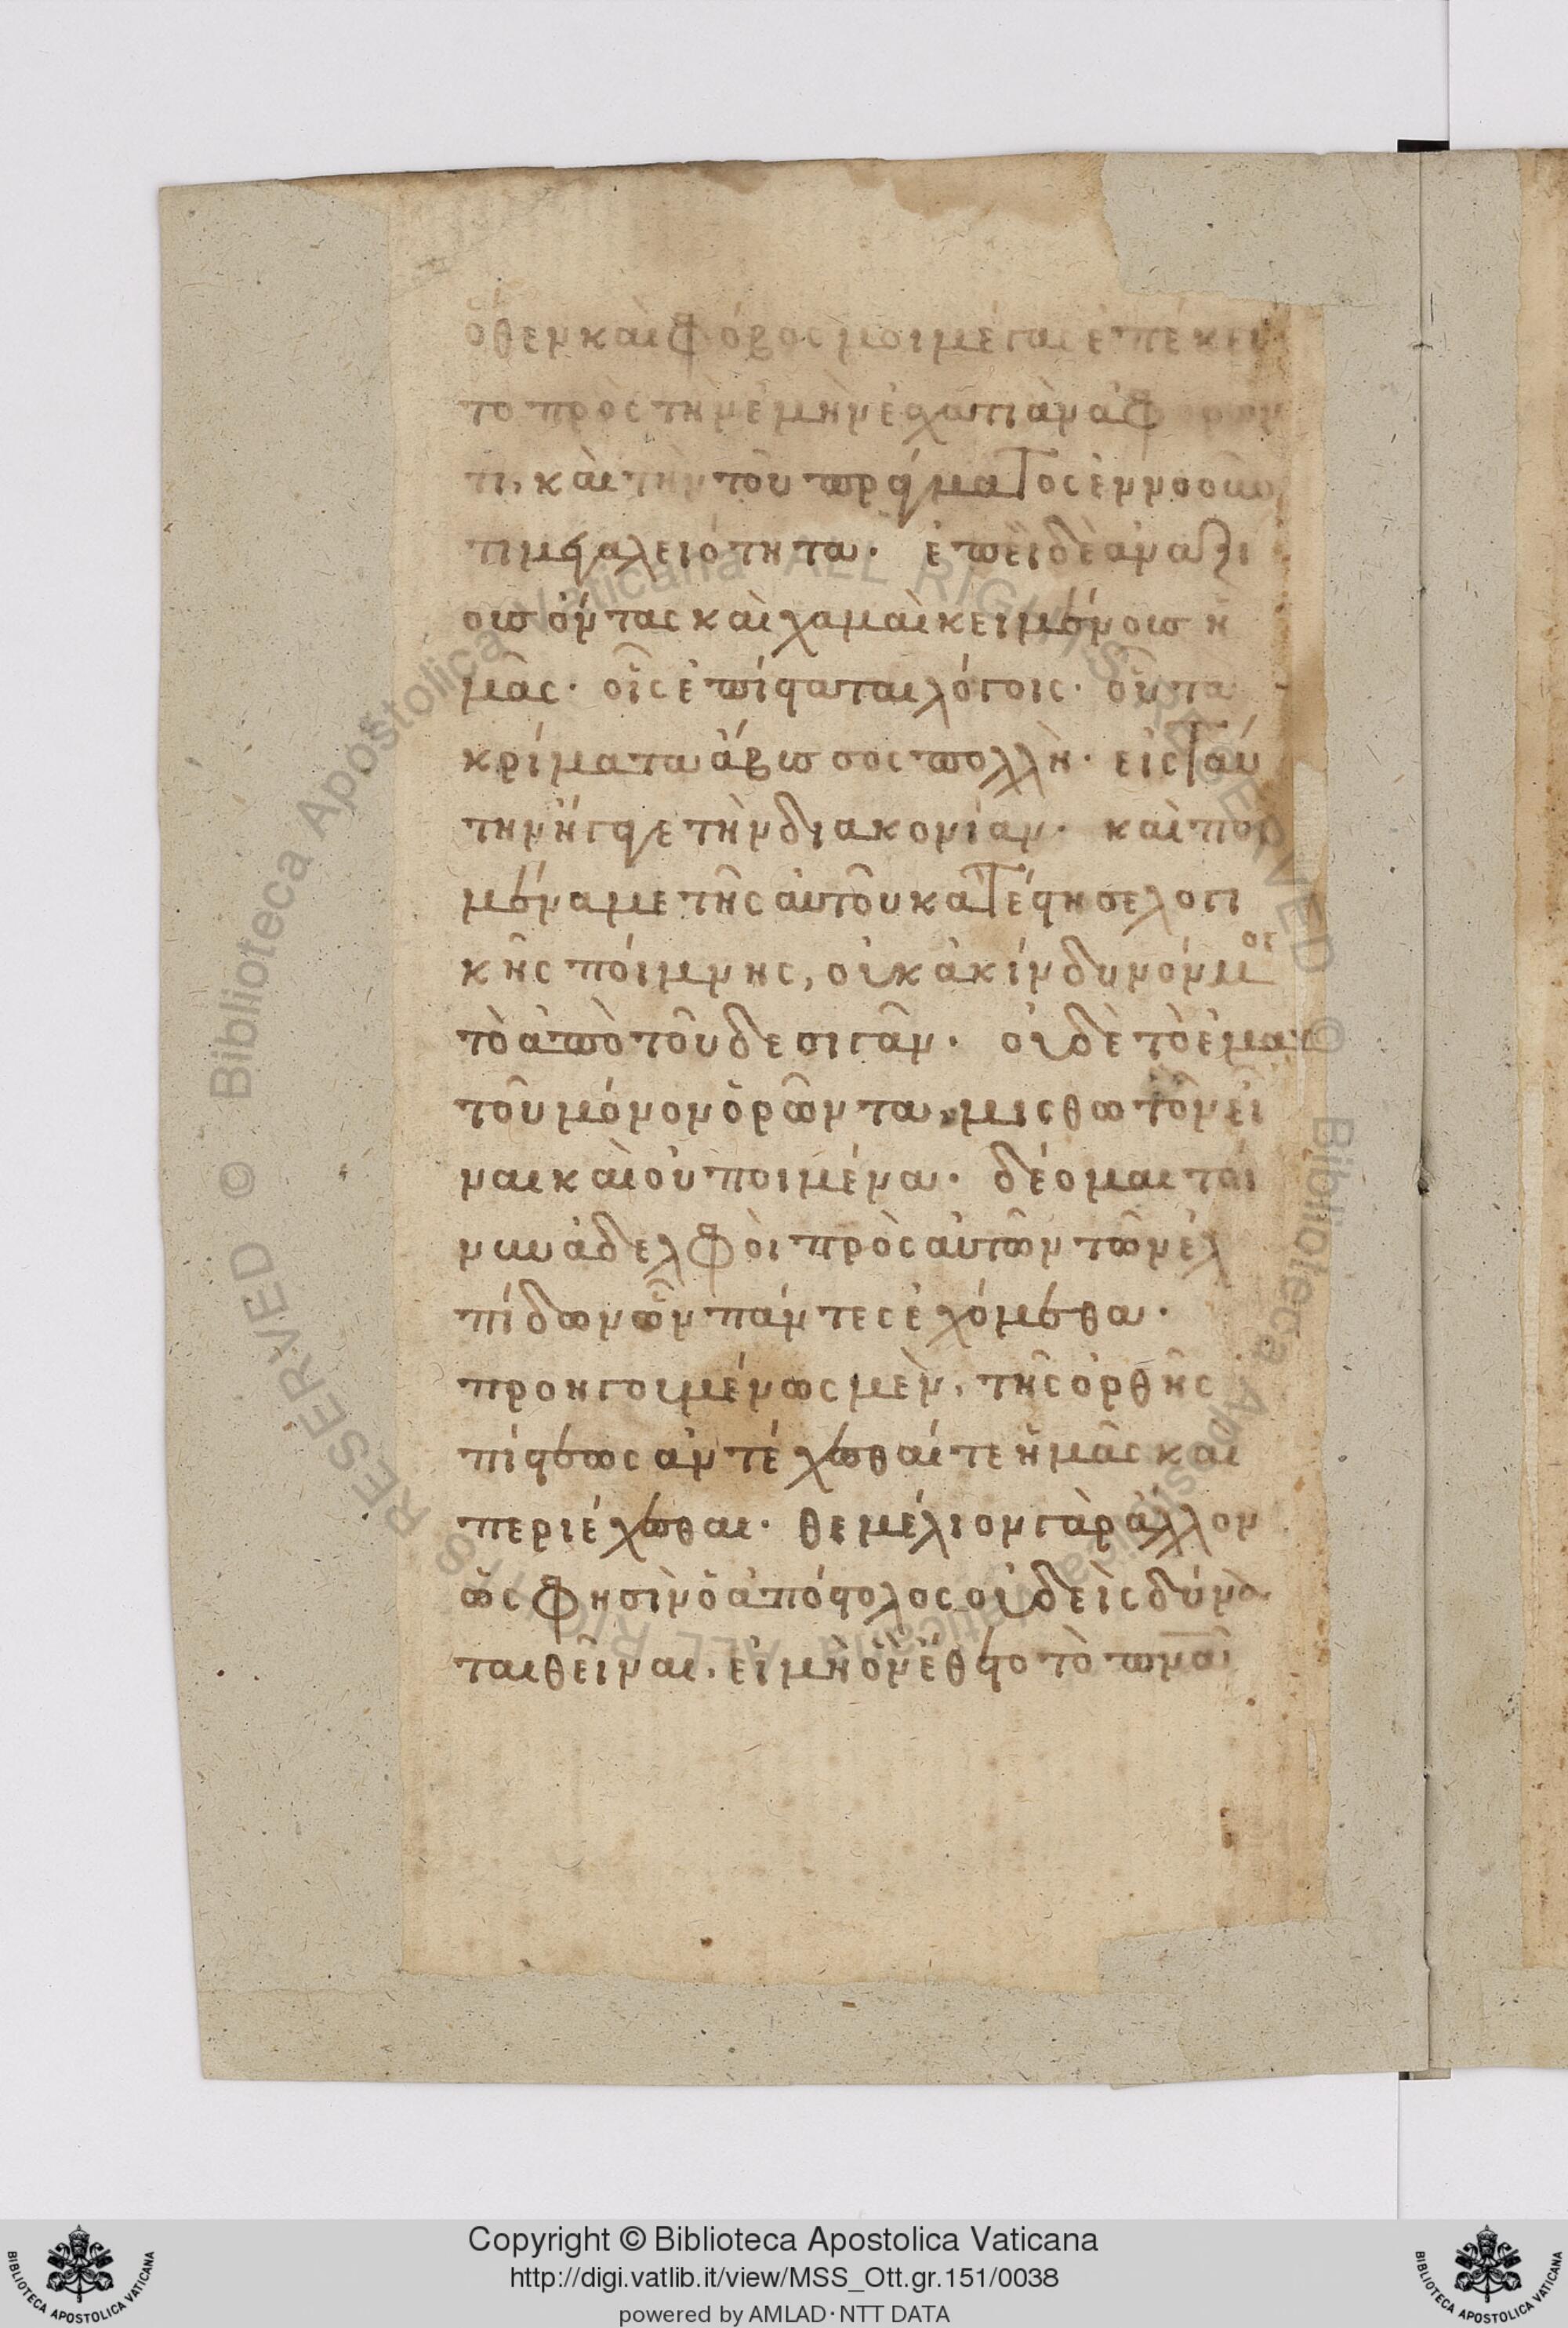 ὅθεν καὶ φόβος μοι μέγας ἐπέκει
το πρὸς τὴν ἐμὴν ἐσχατιὰν ἀφορῶν
τι, καὶ τὴν τοῦ πράγματος ἐννοοῦν
τι μεγαλειότητα· ἐπεὶ δὲ ἀναξί
ους ὄντας καὶ χαμαὶ κειμένους ἡ
μᾶς· οἷς ἐπίσταται λόγοις· οὗ τὰ
κρίματα ἄβυσσος πολλή· εἰς ταύ
την ἤγαγε τὴν διακονίαν· καὶ ποι
μένα με τῆς αὐτοῦ κατέστησε λογι
κῆς ποίμνης, οὐκ ἀκίνδυνόν μοι
τὸ ἀπὸ τοῦδε σιγᾶν· οὐδὲ τὸ ἐμαυ
τοῦ μόνον ὁρῶντα, μισθωτὸν εἶ
ναι καὶ οὐ ποιμένα· δέομαι τοί
νυν ἀδελφοὶ πρὸς αὐτῶν τῶν ἐλ
πίδων ὧν πάντες ἐχόμεθα·
προηγουμένως μὲν, τῆς ὀρθῆς
πίστεως ἀντέχεσθαί τε ἡμᾶς καὶ
περιέχεσθαι· θεμέλιον γὰρ ἄλλον
ὥς φησὶν ὁ ἀπόστολος οὐδεὶς δύνα
ται θεῖναι, εἰ μὴ ὃν ἔθετο τὸ πνα
Copyright © Biblioteca Apostolica Vaticana
http://digi.vatlib.it/view/MSS_Ott.gr.151/0038
powered by AMLAD · NTT DATA
BIBLIOTECA APOSTOLICA VATICANA
BIBLIOTECA APOSTOLICA VATICANA
RESERVED © Biblioteca Apostolica Vaticana ALL RIGHTS RESERVED © Biblioteca Apostolica Vaticana ALL RIGHTS